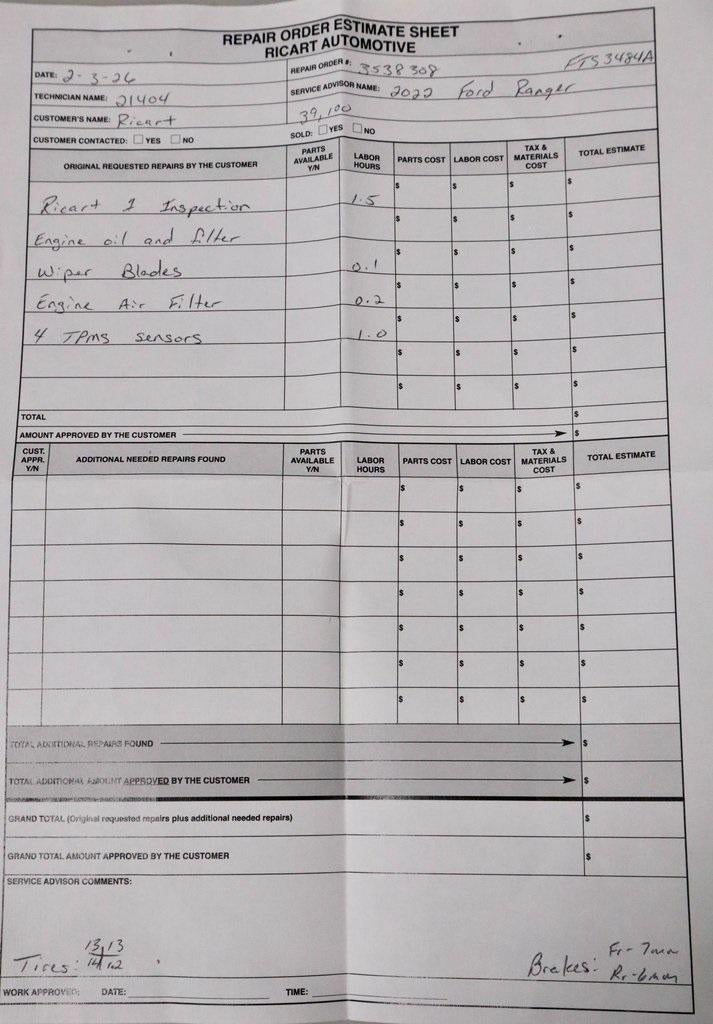 REPAIR ORDER ESTIMATE SHEET
RICART AUTOMOTIVE
DATE: 2-3-26 REPAIR ORDER #: 3538308 FTS3484A
TECHNICIAN NAME: 21404 SERVICE ADVISOR NAME: 2022 Ford Ranger
CUSTOMER'S NAME: Ricart 39,100
CUSTOMER CONTACTED: ☐ YES ☐ NO SOLD: ☐ YES ☐ NO
ORIGINAL REQUESTED REPAIRS BY THE CUSTOMER PARTS AVAILABLE Y/N LABOR HOURS PARTS COST LABOR COST TAX & MATERIALS COST TOTAL ESTIMATE
Ricart 1 Inspection 1.5 $ $ $ $
Engine oil and filter $ $ $ $
Wiper Blades 0.1 $ $ $ $
Engine Air Filter 0.2 $ $ $ $
4 TPMS sensors 1.0 $ $ $ $
$ $ $ $
$ $ $ $
TOTAL $
AMOUNT APPROVED BY THE CUSTOMER $
CUST. APPR. Y/N ADDITIONAL NEEDED REPAIRS FOUND PARTS AVAILABLE Y/N LABOR HOURS PARTS COST LABOR COST TAX & MATERIALS COST TOTAL ESTIMATE
$ $ $ $
$ $ $ $
$ $ $ $
$ $ $ $
$ $ $ $
$ $ $ $
$ $ $ $
TOTAL ADDITIONAL REPAIRS FOUND $
TOTAL ADDITIONAL AMOUNT APPROVED BY THE CUSTOMER $
GRAND TOTAL (Original requested repairs plus additional needed repairs) $
GRAND TOTAL AMOUNT APPROVED BY THE CUSTOMER $
SERVICE ADVISOR COMMENTS:
13 13 Fr- 7mm
Tires: 14 12 Brakes: Rr- 6mm
WORK APPROVED: DATE: TIME: